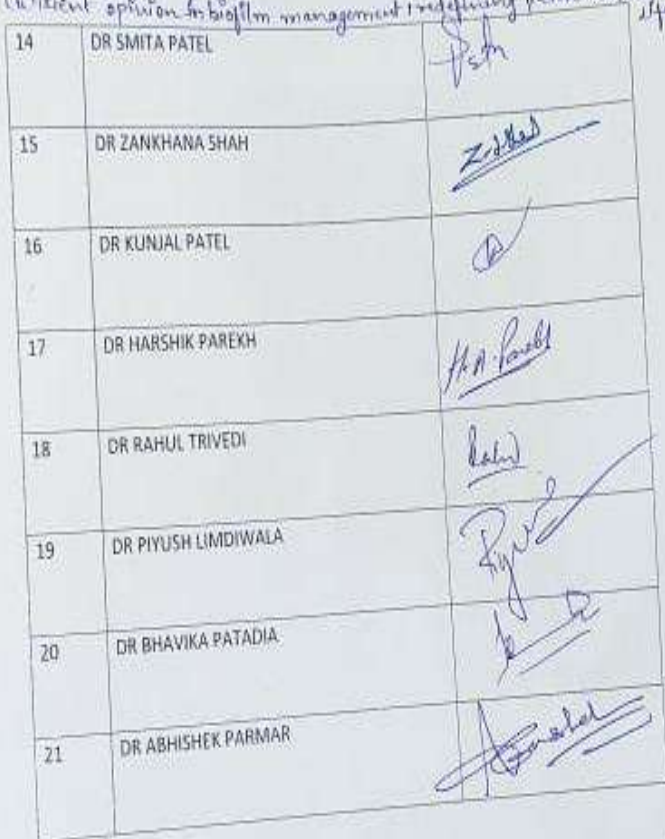 opinion in biofilm management : redefining
14 DR SMITA PATEL
15 DR ZANKHANA SHAH
16 DR KUNJAL PATEL
17 DR HARSHIK PAREKH
H.A. Parekh
18 DR RAHUL TRIVEDI
Rahul
19 DR PIYUSH LIMDIWALA
20 DR BHAVIKA PATADIA
21 DR ABHISHEK PARMAR